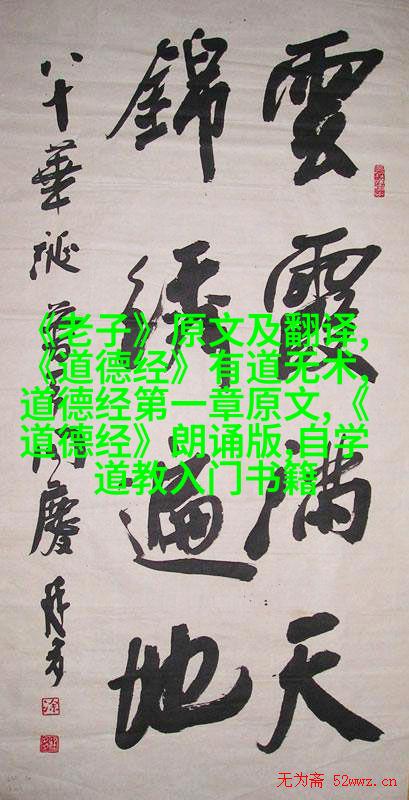 雲霞滿天
錦綉遍地
八十華誕
《老子》原文及翻译,
《道德经》有道无术,
道德经第一章原文,《
道德经》朗诵版,自学
道教入门书籍
无为斋 52wwz.cn